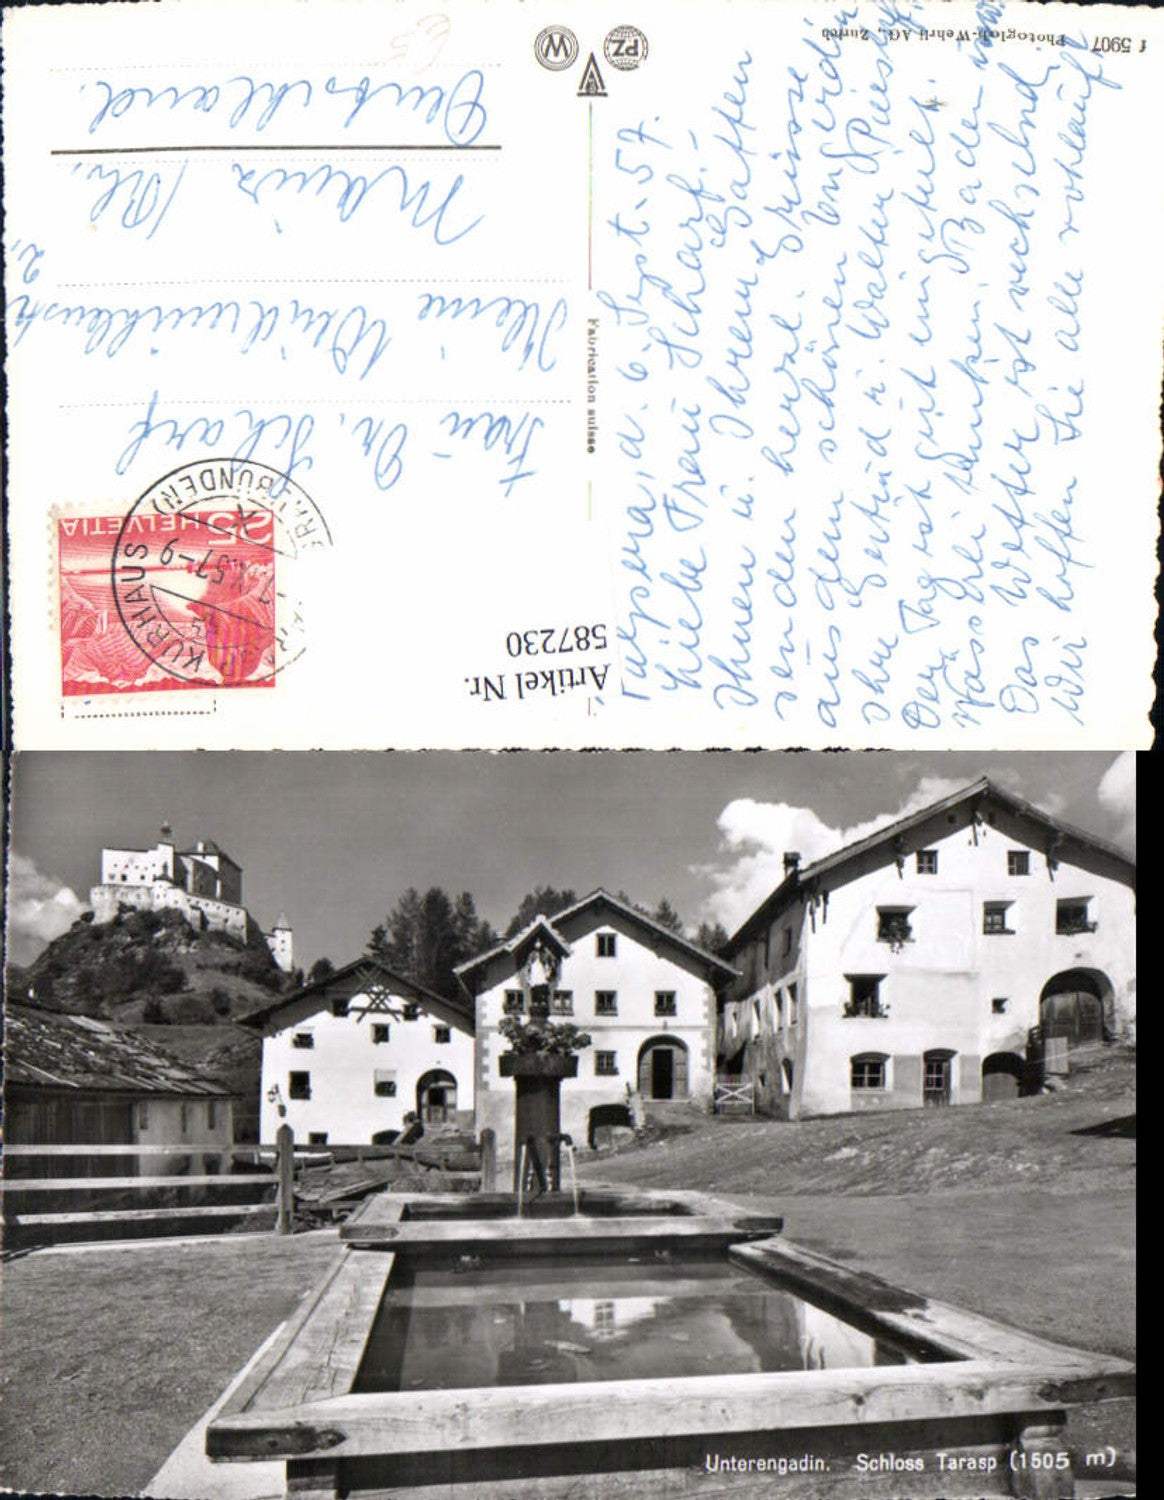 f 5907
Photoglob-Wehrli AG., Zürich
PZ
W
Fabrication suisse
Artikel Nr.
587230
HELVETIA
25
KURHAUS
(GRAUBÜNDEN)
57-9
Frau Dr. Scharf
Kleine Windmühlenstr
2,
Mainz / Rh.
Deutschland.
Tarasp, d. 6. Sept. 57.
Liebe Frau Scharf.-
Ihnen u. Ihrem Gatten
senden herzl. Grüsse
aus dem schönen Engadin
Ihre Gertrud u. Walter
Der Tag ist gut eingeteilt.
Wässerli trinken, Baden usw.
Das Wetter ist wechselnd
Wir hoffen Sie alle wohlauf.
Unterengadin. Schloss Tarasp (1505 m)